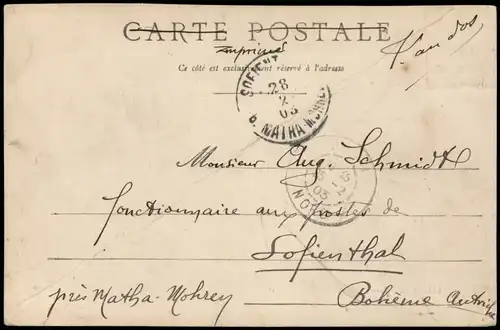 CARTE POSTALE
imprimé
Ce côté est exclusivement réservé à l'adresse
28
2
03
6. MATHA-MOHREY
Monsieur Aug. Schmidt
fonctionnaire aux postes de
Sofienthal
près Matha-Mohrey
Bohème Autriche